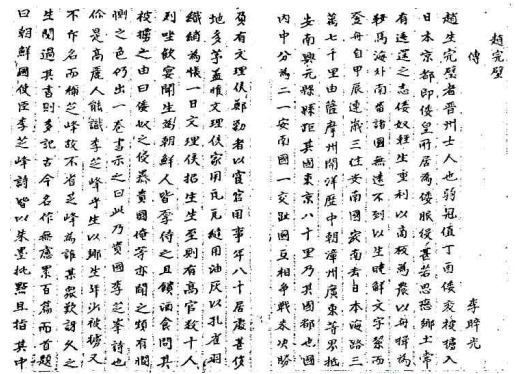 趙完璧
傳
李睟光
趙生完璧者晉州士人也弱冠值丁酉倭變被擄入
日本京都即倭皇所居爲倭服役甚苦思戀鄉土常
有逃還之志倭奴輕生重利以商販爲農以舟楫爲
鞍馬海外南番諸國無遠不到以生曉解文字挈而
登舟自甲辰連歲三往安南國安南去日本海路三
萬七千里由薩摩州開洋歷中朝漳州廣東等界抵
安南興元縣縣距其國東京八十里乃其國都也國
內中分爲二一安南國一交趾國互相爭戰未決勝
負有文理侯鄭勦者以宦官用事年八十居處甚侈
地多茅蓋惟文理侯家用瓦瓦縫用油灰以孔雀羽
織綃爲帳一日文理侯招生生至則有高官數十人
列坐飲宴聞生爲朝鮮人皆厚待之且饋酒食問其
被擄之由曰倭奴之侵暴貴國俺等亦聞之頗有憫
惻之色仍出一卷書示之曰此乃貴國李芝峯詩也
是高人能識李芝峰乎生以鄉生年少被擄又
不斥名而稱芝峰故不省芝峰爲誰某衆歎訝久之
生閱過其書則多記古今名作無慮累百篇而首題
曰朝鮮國使臣李芝峰詩皆以朱墨批點且指其中